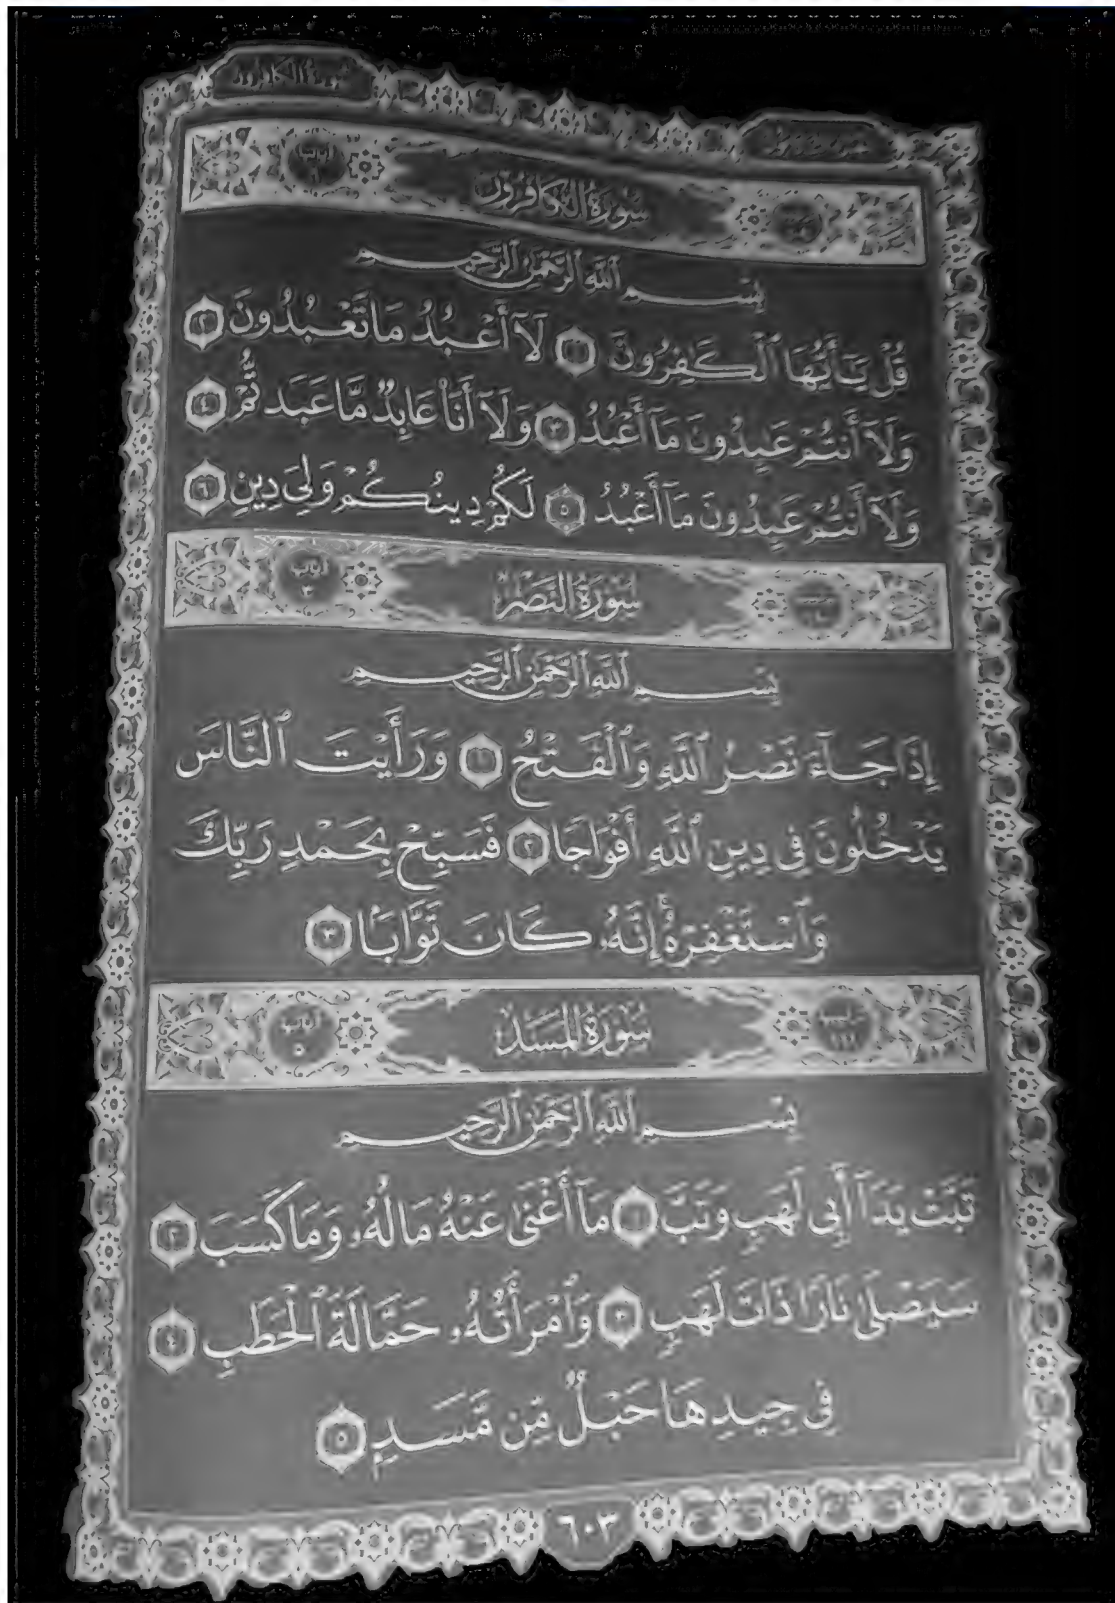 سُورَةُ الْكَافِرُونَ
بِسْمِ ٱللَّهِ ٱلرَّحْمَٰنِ ٱلرَّحِيمِ
قُلْ يَٰٓأَيُّهَا ٱلْكَٰفِرُونَ ١ لَآ أَعْبُدُ مَا تَعْبُدُونَ ٢
وَلَآ أَنتُمْ عَٰبِدُونَ مَآ أَعْبُدُ ٣ وَلَآ أَنَا۠ عَابِدٌ مَّا عَبَدتُّمْ ٤
وَلَآ أَنتُمْ عَٰبِدُونَ مَآ أَعْبُدُ ٥ لَكُمْ دِينُكُمْ وَلِيَ دِينِ ٦
سُورَةُ النَّصْرِ
آياتها ٣
بِسْمِ ٱللَّهِ ٱلرَّحْمَٰنِ ٱلرَّحِيمِ
إِذَا جَآءَ نَصْرُ ٱللَّهِ وَٱلْفَتْحُ ١ وَرَأَيْتَ ٱلنَّاسَ
يَدْخُلُونَ فِى دِينِ ٱللَّهِ أَفْوَاجًا ٢ فَسَبِّحْ بِحَمْدِ رَبِّكَ
وَٱسْتَغْفِرْهُ إِنَّهُۥ كَانَ تَوَّابًۢا ٣
سُورَةُ الْمَسَدِ
آياتها ٥
بِسْمِ ٱللَّهِ ٱلرَّحْمَٰنِ ٱلرَّحِيمِ
تَبَّتْ يَدَآ أَبِى لَهَبٍ وَتَبَّ ١ مَآ أَغْنَىٰ عَنْهُ مَالُهُۥ وَمَا كَسَبَ ٢
سَيَصْلَىٰ نَارًا ذَاتَ لَهَبٍ ٣ وَٱمْرَأَتُهُۥ حَمَّالَةَ ٱلْحَطَبِ ٤
فِى جِيدِهَا حَبْلٌ مِّن مَّسَدٍۭ ٥
٦٠٣